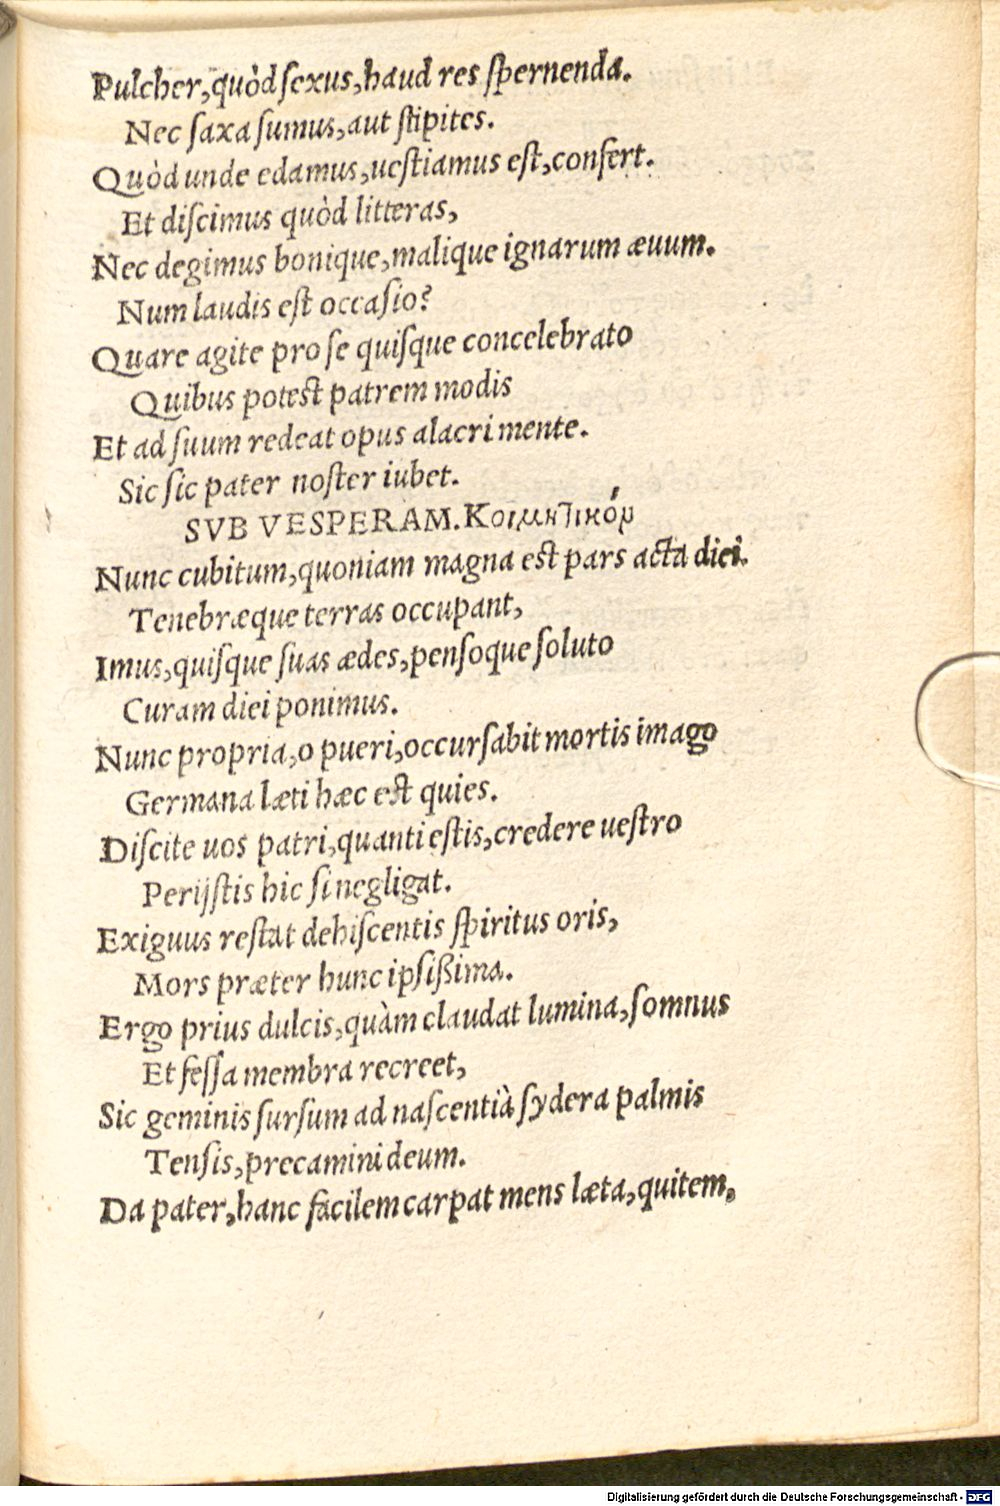 Pulcher, quòd sexus, haud res spernenda.
Nec saxa sumus, aut stipites.
Quòd unde edamus, uestiamus est, confert.
Et discimus quòd litteras,
Nec degimus bonique, malique ignarum æuum.
Num laudis est occasio?
Quare agite pro se quisque concelebrato
Quibus potest patrem modis
Et ad suum redeat opus alacri mente.
Sic sic pater noster iubet.
SVB VESPERAM. Κοιμητικόν
Nunc cubitum, quoniam magna est pars acta diei.
Tenebræque terras occupant,
Imus, quisque suas ædes, pensoque soluto
Curam diei ponimus.
Nunc propria, o pueri, occursabit mortis imago
Germana læti hæc est quies.
Discite uos patri, quanti estis, credere uestro
Perijstis hic si negligat.
Exiguus restat dehiscentis spiritus oris,
Mors præter hunc ipsißima.
Ergo prius dulcis, quàm claudat lumina, somnus
Et fessa membra recreet,
Sic geminis sursum ad nascentià sydera palmis
Tensis, precamini deum.
Da pater, hanc facilem carpat mens læta, quitem,
Digitalisierung gefördert durch die Deutsche Forschungsgemeinschaft - DFG